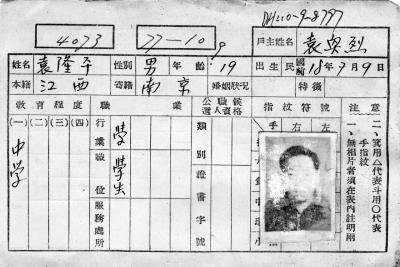 DH220-9-8797
4073
27-10
9
戶主姓名 袁奐烈
姓名 袁隆平 性別 男 年齡 19 出生 民國前 18年7月9日
本籍 江西 寄籍 南京 婚姻狀況 特徵
教育程度 職業 公職候選人資格 指紋符號 注意
(一) (二) (三) (四)
中學
行業 學
職位 學生
服務處所
類別
證書字號
手 右 左
一、無相片者須在表內註明兩手指紋
二、寬用△代表斗用〇代表